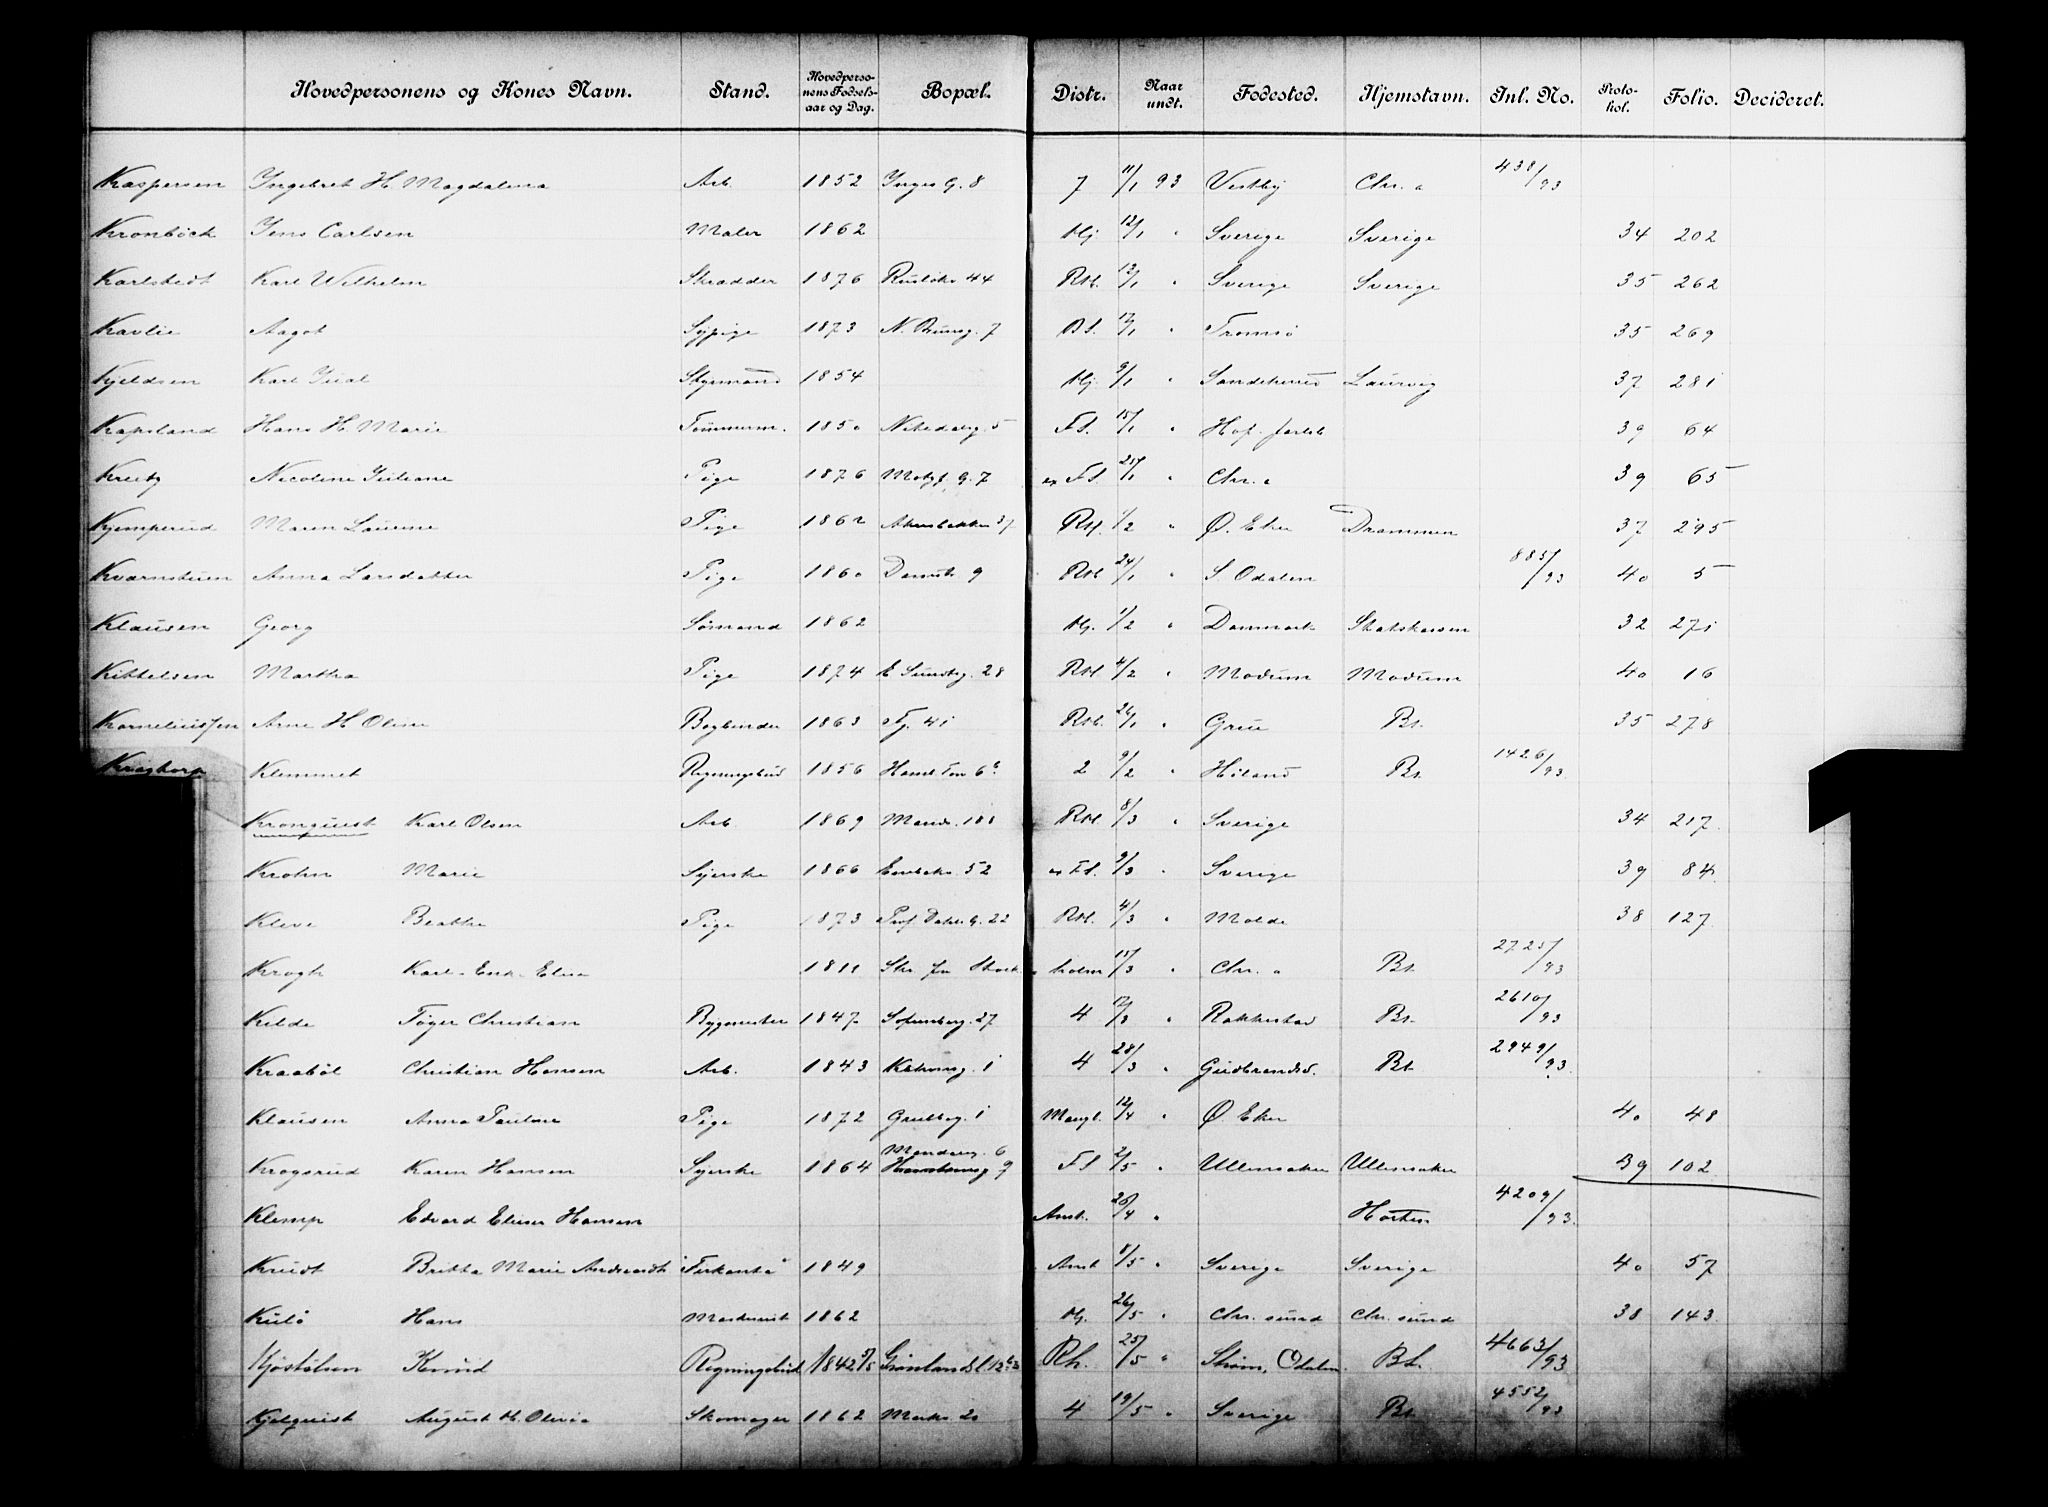 Hovedpersonens og Kones Navn. Stand. Hovedpersonens Fødselsaar og Dag. Bopæl. Distr. Naar undt. Fødested. Hjemstavn. Inl. No. Protokol. Folio. Decideret.
Kaspersen Ingebret H. Magdalena Arb. 1852 Inges G. 8 7 11/1 93 Vestby Chr. a 438/93
Kronböck Jens Carlsen Maler 1862 Hj. 12/1 " Sverige Sverige 34 202
Karlstedt Karl Wilhelm Skrædder 1876 Rusløkv 44 Rtl. 12/1 " Sverige Sverige 35 262
Kavlie Aagot Sypige 1873 N. Brunsg. 7 B.S. 12/1 " Tromsø 35 269
Kjeldsen Karl Styrmand 1854 Hj. 9/1 " Sandeherred Laurvig 37 281
Kapsland Hans H. Marie Tømmerm. 1850 5 F.S. 15/1 " Hof. Jarlsb 39 64
Nicoline Juliane Pige 1876 Motzf. G. 7 F.S. 25/1 " Chr. a 39 65
Kjemperud Maren Laurine Pige 1862 Akersbakken 37 Rtl. 1/2 " Ø. Eker Drammen 37 295
Anna Larsdatter Pige 1860 9 Rtl 24/1 " S. Odalen 885/93 40 5
Klausen Georg Sømand 1862 Hj. 1/2 " Danmark 32 271
Kittelsen Martha Pige 1874 E. Sundtsg. 28 Rtl 4/2 " Modum Modum 40 16
Korneliussen Arne H. Oline Bogbinder 1863 Tg. 41 Rtl. 26/1 " Grue Bt. 35 278
Klemmet Regningsbud 1856 2 9/2 " Høland Bt. 1426/93
Kronquist Karl Olsen Arb. 1869 Marid. 108 Rtl. 8/3 " Sverige 34 217
Krohn Marie Syerske 1866 52 F.S. 9/3 " Sverige 39 84
Kleve Beathe Pige 1873 Prof. Dahls G. 22 Rtl. 4/3 " Molde 38 127
Krogh Karl. Enk. Elise 1811 Skr. fra Stockholm 15/3 " Chr. a Bt. 2725/93
Kilde Tøger Christian Bygmester 1847 Sofienbrg. 27 4 17/3 " Rakkestad Bt. 2610/93
Kraabøl Christian Hansen Arb. 1843 1 4 28/3 " Gudbrandsd. Bt. 2949/93
Klausen Anna Pauline Pige 1872 Grubbeg. 1 Mangl. 12/4 " Ø. Eker 40 48
Mandalsg. 6
Krogsrud Karen Hansen Syerske 1864 9 F.S 2/5 " Ullensaker Ullensaker 39 102
Klemp Edvard Hansen Amt. 26/4 " Horten 4209/93
Britta Marie 1849 Amt 8/5 " Sverige Sverige 40 57
Kulø Hans 1862 Hj. 26/5 " Chr. sund Chr. sund 38 143
Kjøstelsen Knud Regningsbud 1842 Grønlandsl. Rh. 25/5 " Strøm, Odalen Bt. 4663/93
Kjelquist August H. Olivia Skomager 1862 20 4 19/5 " Sverige Bt. 4552/93